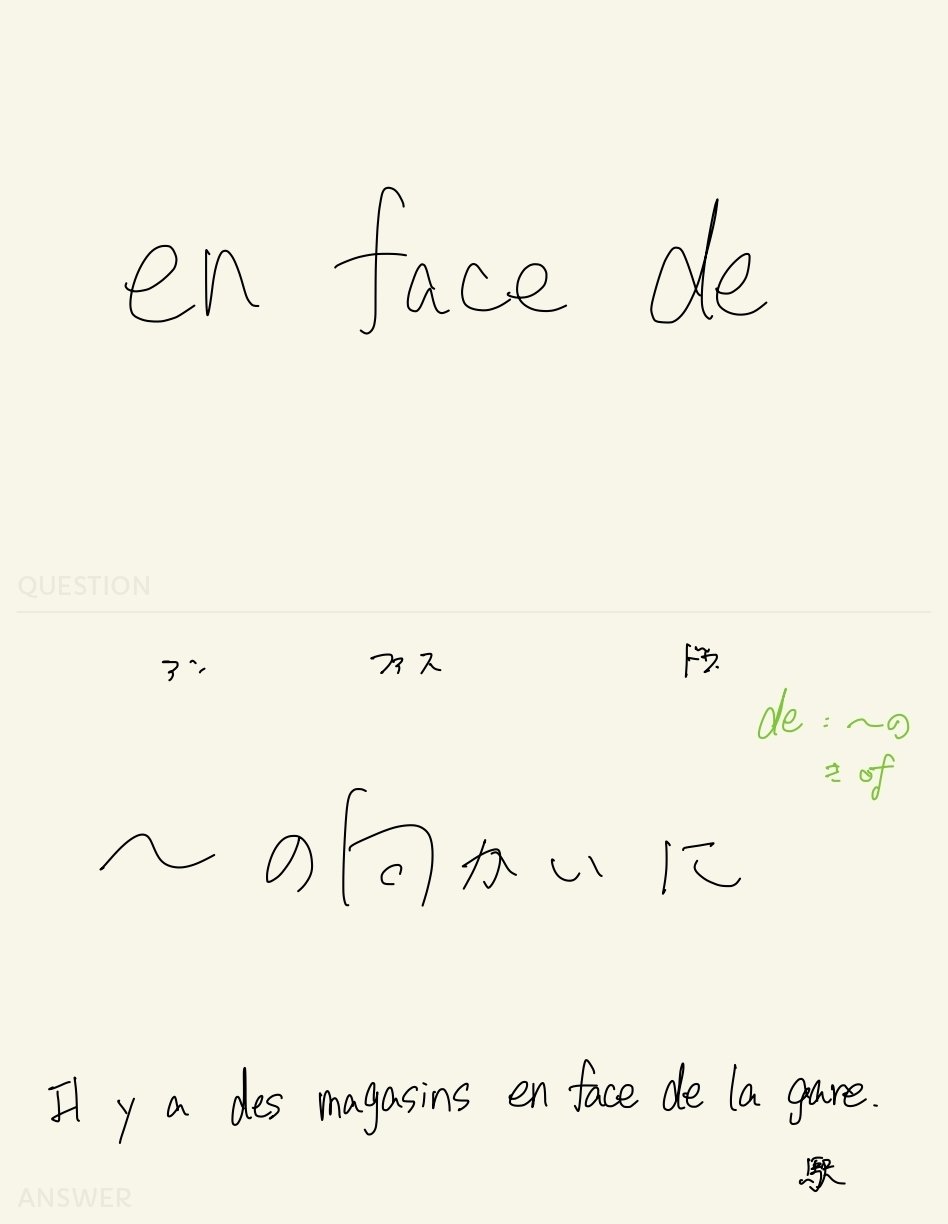 en face de
QUESTION
アン ファス ドゥ
de : ～の
= of
～の向かいに
Il y a des magasins en face de la gare.
駅
ANSWER